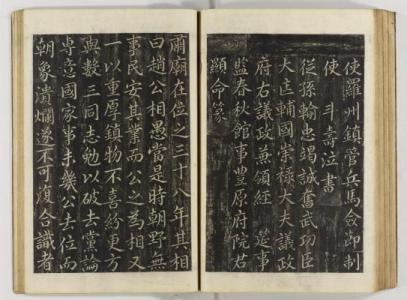 使羅州鎮管兵馬僉節制
使 斗壽泣書
從孫輸忠竭誠奮武功臣
大匡輔國崇祿大夫議政
府右議政兼領經 筵事
監春秋館事豐原府院君
顯命篆
肅廟在位之三十八年其相
曰趙公相愚當是時朝野無
事民安其業而公之為相又
一以重厚鎮物不喜紛更方
與數三同志勉以破去黨論
專意國家事未幾公去位而
朝象潰爛遂不可復合識者